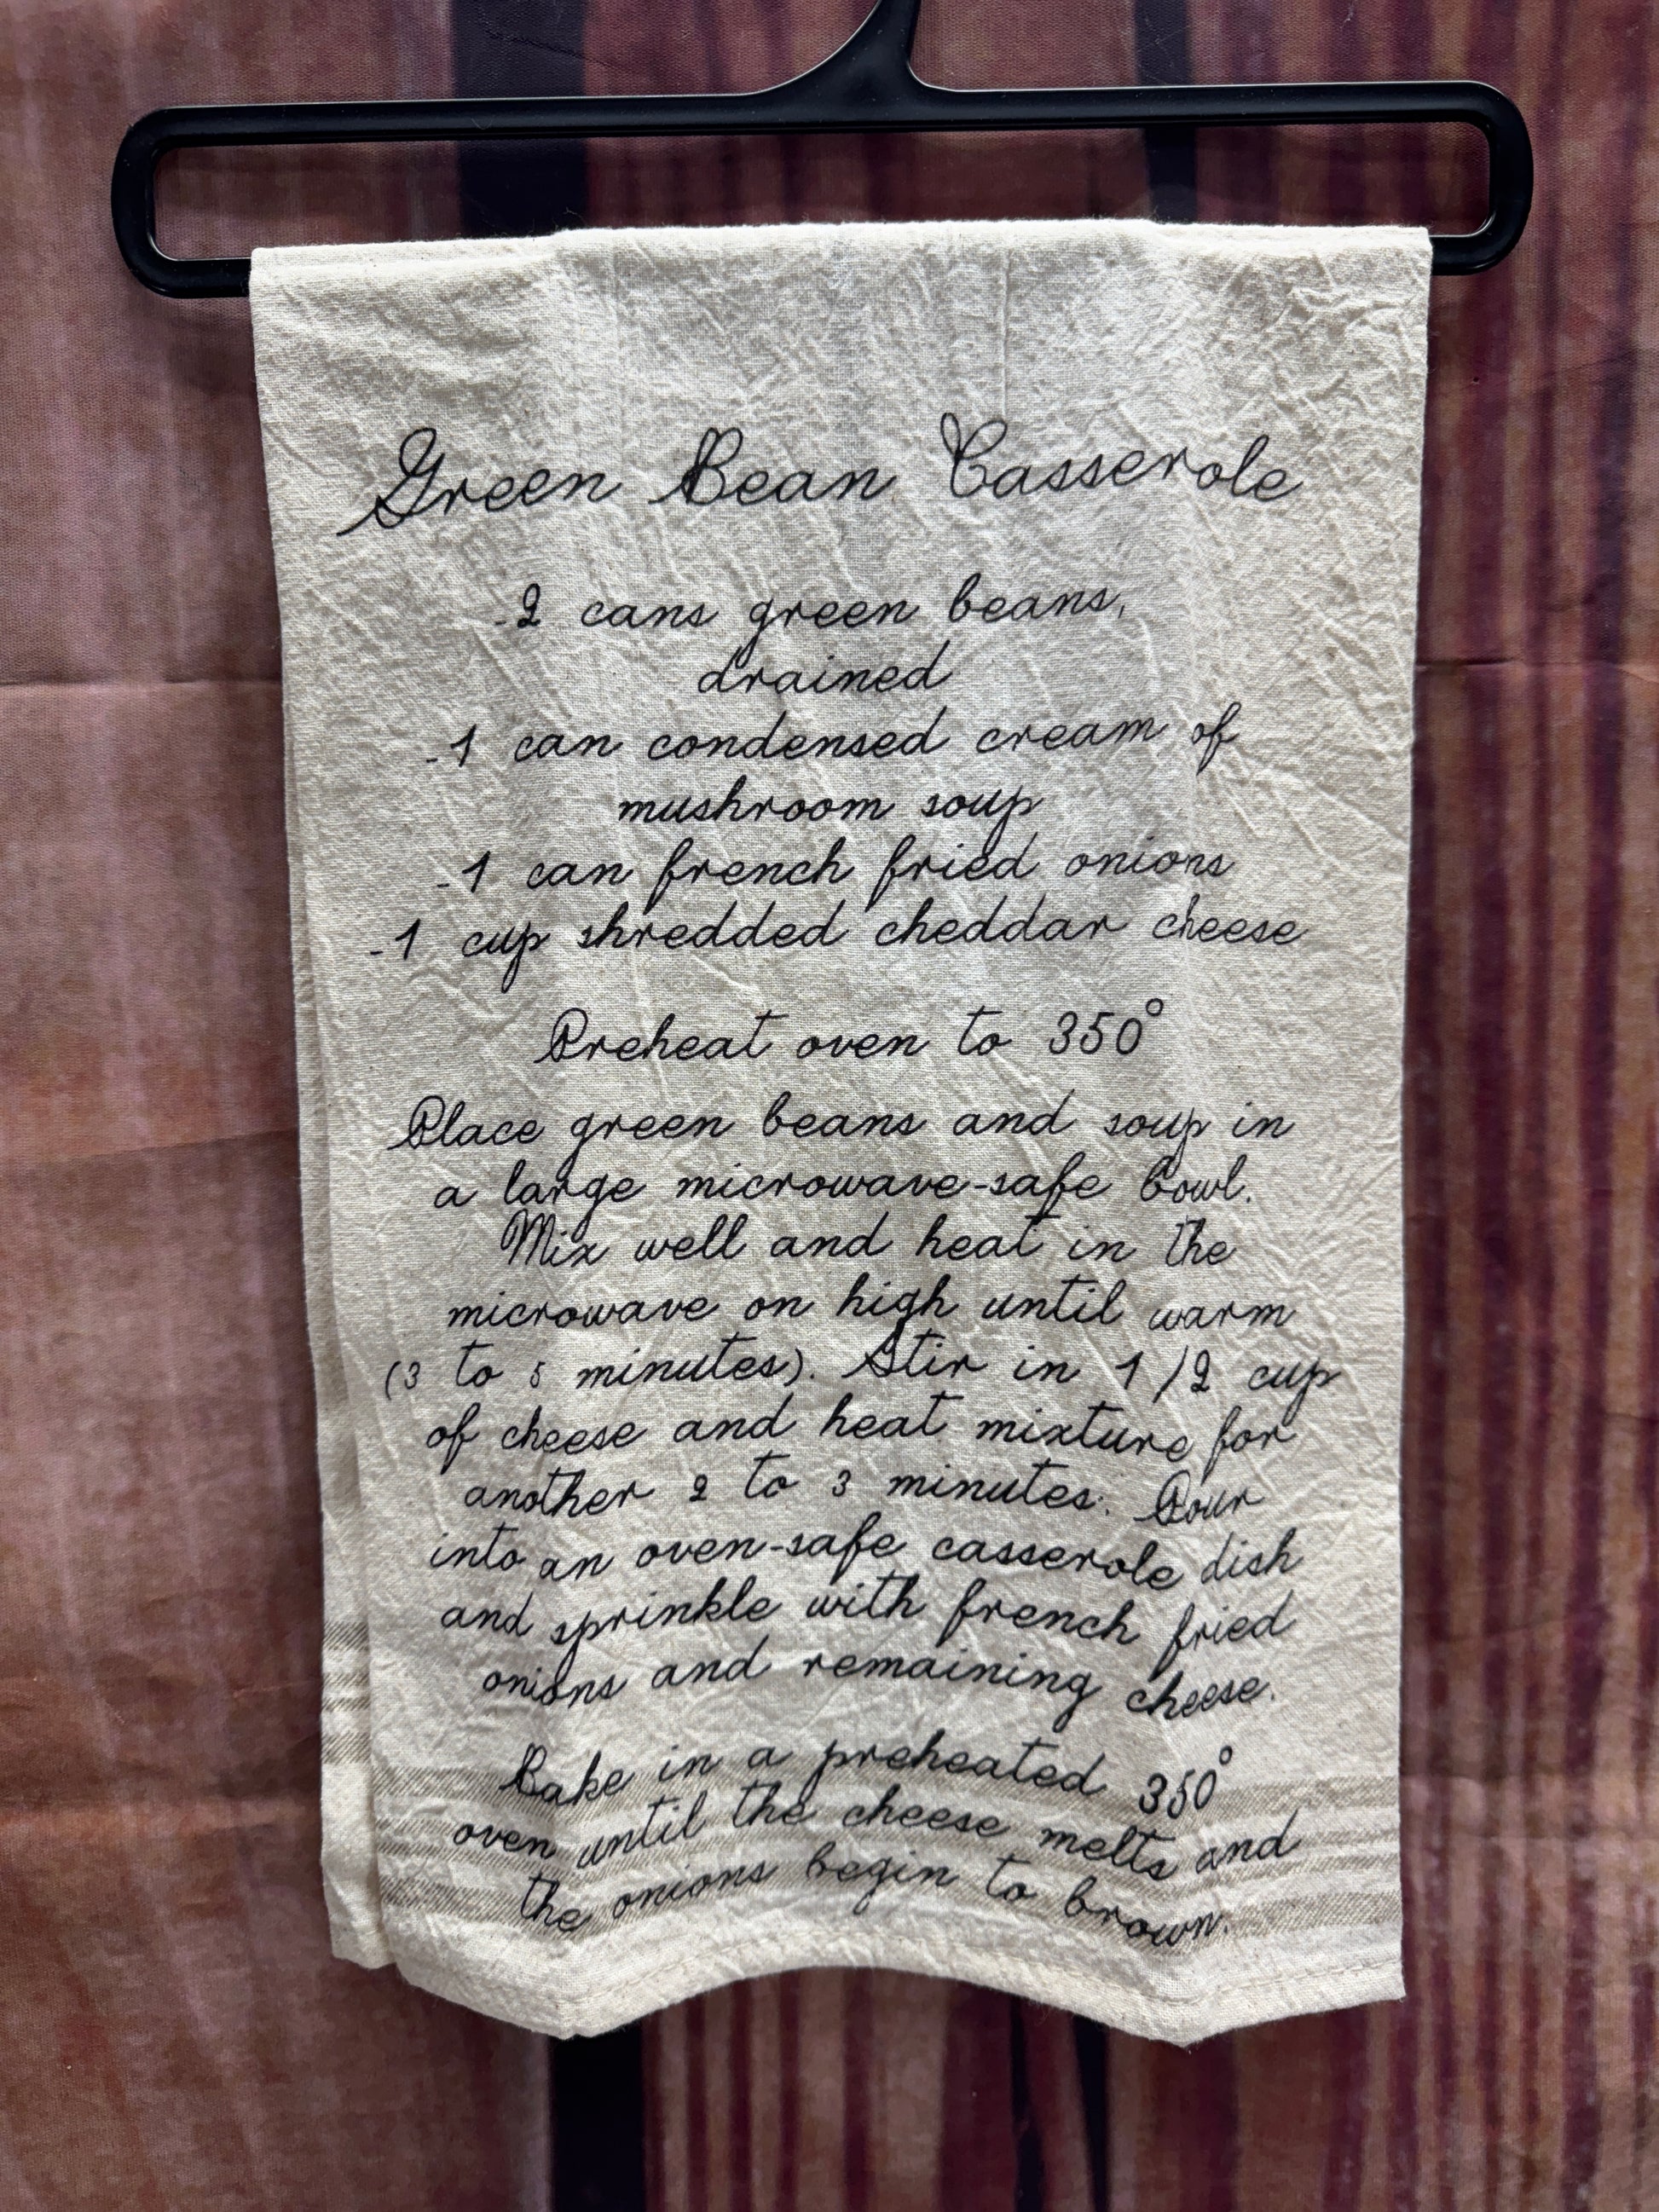 Green Bean Casserole
-2 cans green beans,
drained
-1 can condensed cream of
mushroom soup
-1 can french fried onions
-1 cup shredded cheddar cheese
Preheat oven to 350°
Place green beans and soup in
a large microwave-safe bowl.
Mix well and heat in the
microwave on high until warm
(3 to 5 minutes). Stir in 1/2 cup
of cheese and heat mixture for
another 2 to 3 minutes. Pour
into an oven-safe casserole dish
and sprinkle with french fried
onions and remaining cheese.
Bake in a preheated 350°
oven until the cheese melts and
the onions begin to brown.